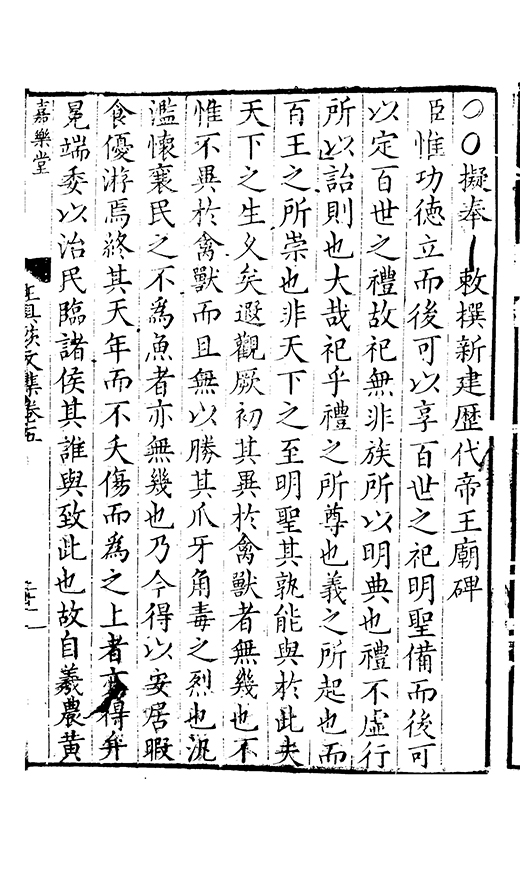 ○○擬奉敕撰新建歷代帝王廟碑
臣惟功德立而後可以享百世之祀明聖備而後可
以定百世之禮故祀無非族所以明典也禮不虛行
所以詒則也大哉祀乎禮之所尊也義之所起也而
百王之所崇也非天下之至明聖其孰能與於此夫
天下之生久矣遐觀厥初其異於禽獸者無幾也不
惟不異於禽獸而且無以勝其爪牙角毒之烈也氾
濫懷襄民之不為魚者亦無幾也乃今得以安居暇
食優游焉終其天年而不夭傷而為之上者亦得弁
冕端委以治民臨諸侯其誰與致此也故自羲農黃
嘉樂堂
文集卷十五